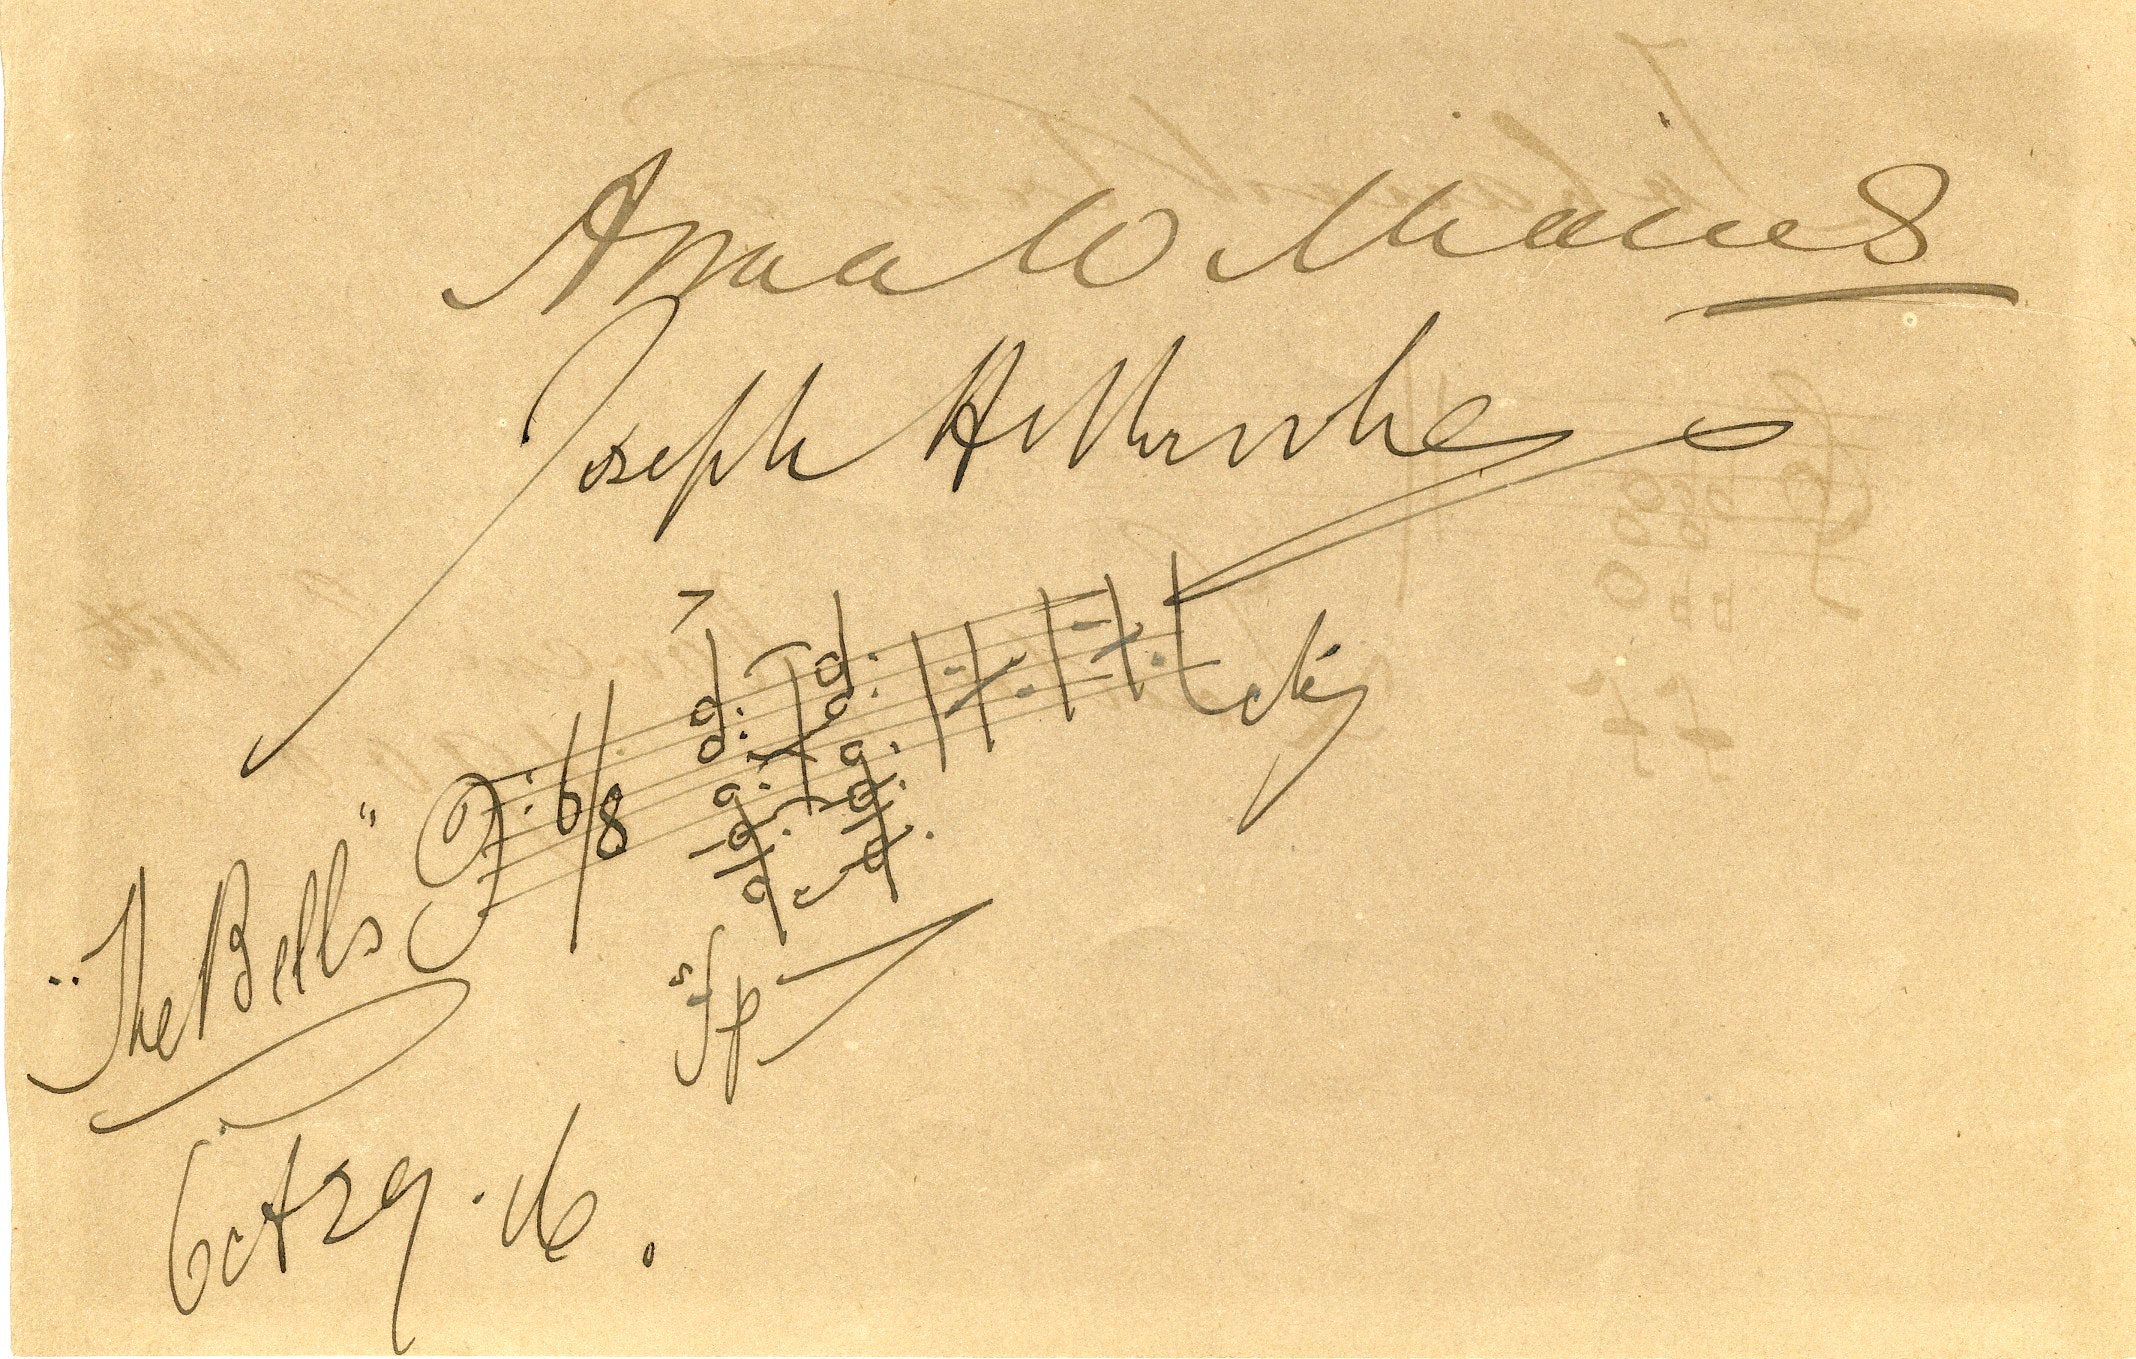 Anna Williams
Joseph Holbrooke
6/8
etc
"The Bells"
sfp
Oct 29.16.